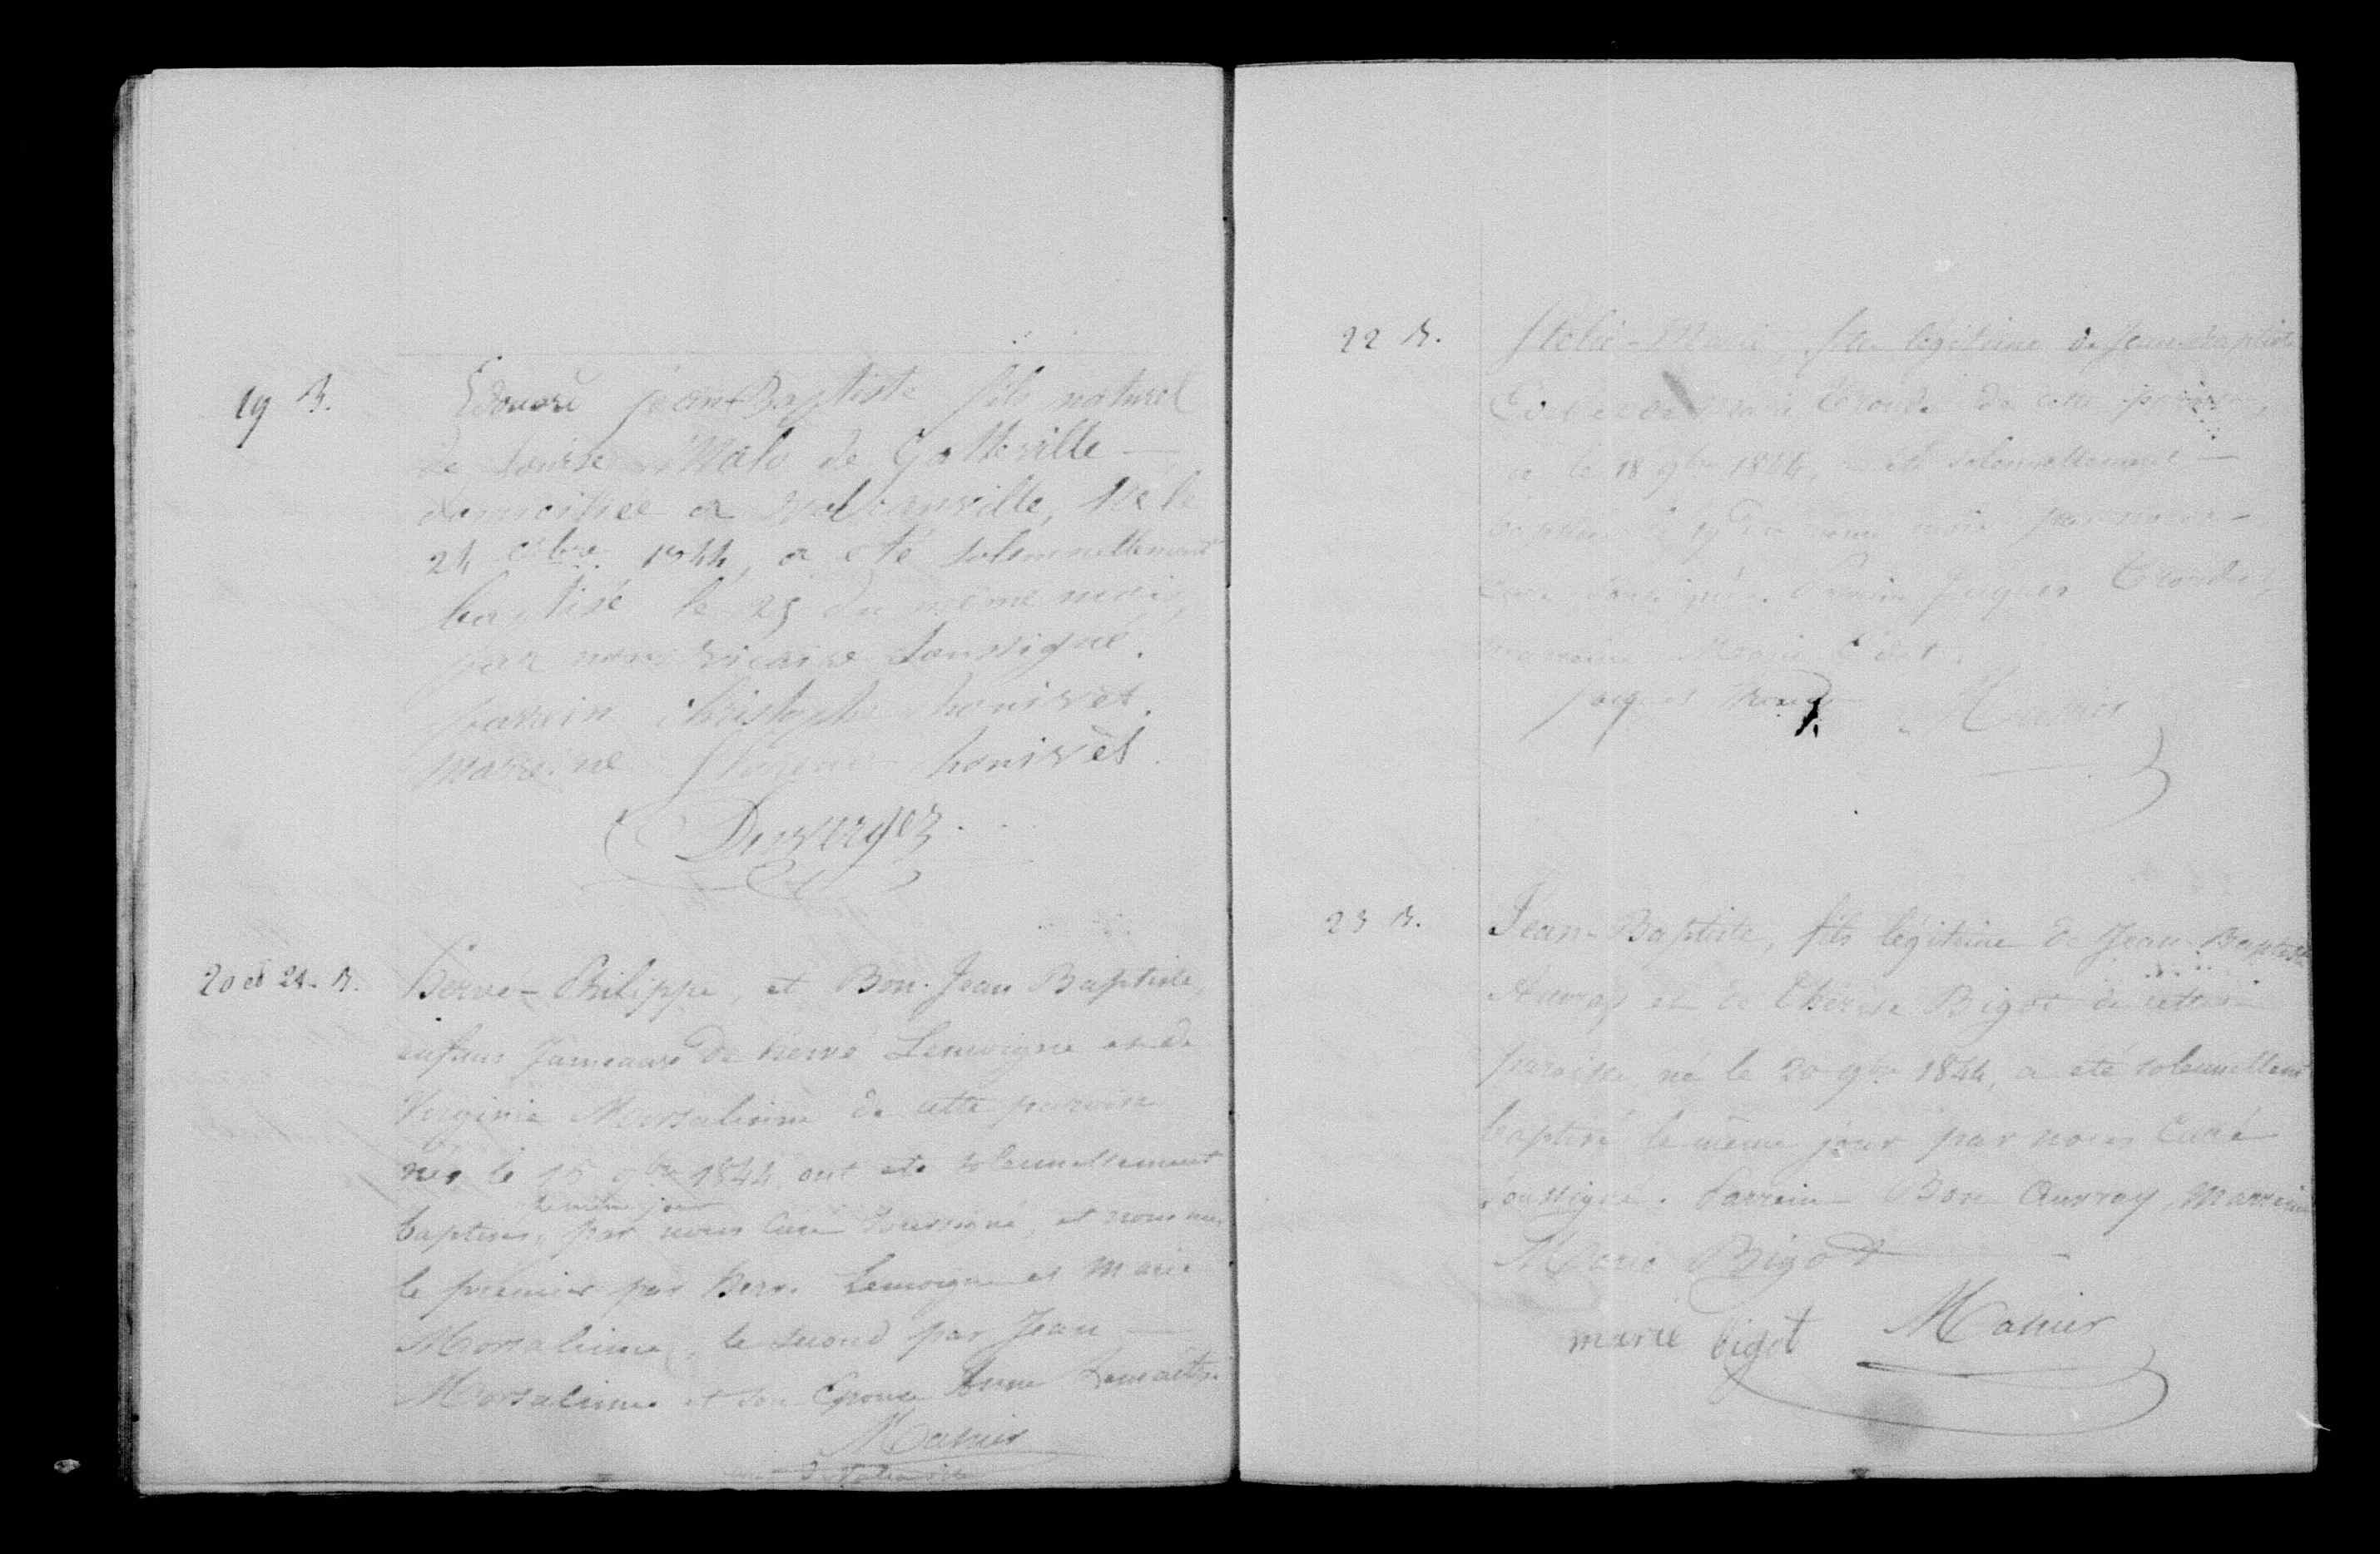 19 B.
Edouard jean Baptiste fils naturel
de Louise Malo de Gatteville —
domiciliée a valcanville, Né le
24 8bre 1844, a été solennellement
baptisé le 25 du même mois,
par nous vicaire soussigné.
parain Christophe honivet.
marreine honivet.
Duvergez
20 et 21. B.
Herve-Philippe, et Bon. Jean Baptiste,
enfans Jumeaux de hervé Lemoigne et de
Virginie Morsalinne de cette paroisse
nés le 15 9bre 1844, ont été solennellement
le même jour
baptisés, par nous Curé soussigné, et nommés
le premier par Herve Lemoigne et Marie
Morsalinne, le second par Jean —
Morsalinne et son Epouse Anne Lemaitre
Mahier
22 B.
Marie, légitime de Jean Baptiste
Marie de cette paroisse,
le 18 9bre 1844, a été solennellement —
baptisé le 19 du même mois par nous —
Curé soussigné. Parrain Jacques
marreine Marie
jacques
Mahier
23 B.
Jean-Baptiste, fils légitime de Jean Baptiste
Auvray et de Thérèse Bigot de cette
paroisse, né le 20 9bre 1844, a été solennellement
baptisé le même jour par nous Curé
soussigné. Parrain Bon Auvray, Marreine
Marie Bigot
marie bigot Mahier